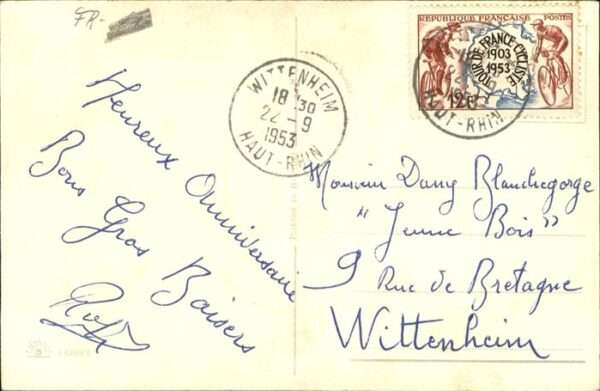 FR-
RÉPUBLIQUE FRANÇAISE POSTES
TOUR DE FRANCE CYCLISTE
1903
1953
12F
HAUT-RHIN
WITTENHEIM
18 30
22-9
1953
HAUT-RHIN
Heureux Anniversaire
Bons Gros Baisers
Monsieur Dany Blanchegorge
"Jeune Bois"
9 Rue de Bretagne
Wittenheim